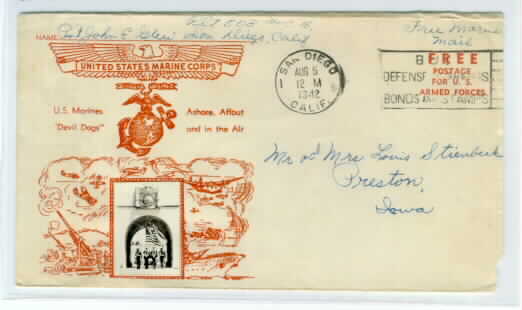 PLT 503
NAME Pvt John E. Glew San Diego, Calif
Free Marine
Mail
UNITED STATES MARINE CORPS
U.S. Marines
"Devil Dogs"
Ashore, Afloat
and in the Air
SAN DIEGO
1
AUG 5
12 M
1942
CALIF.
B
DEFENSE
BONDS STAMPS
FREE
POSTAGE
FOR U.S.
ARMED FORCES
Mr and Mrs Louis
Preston
Iowa